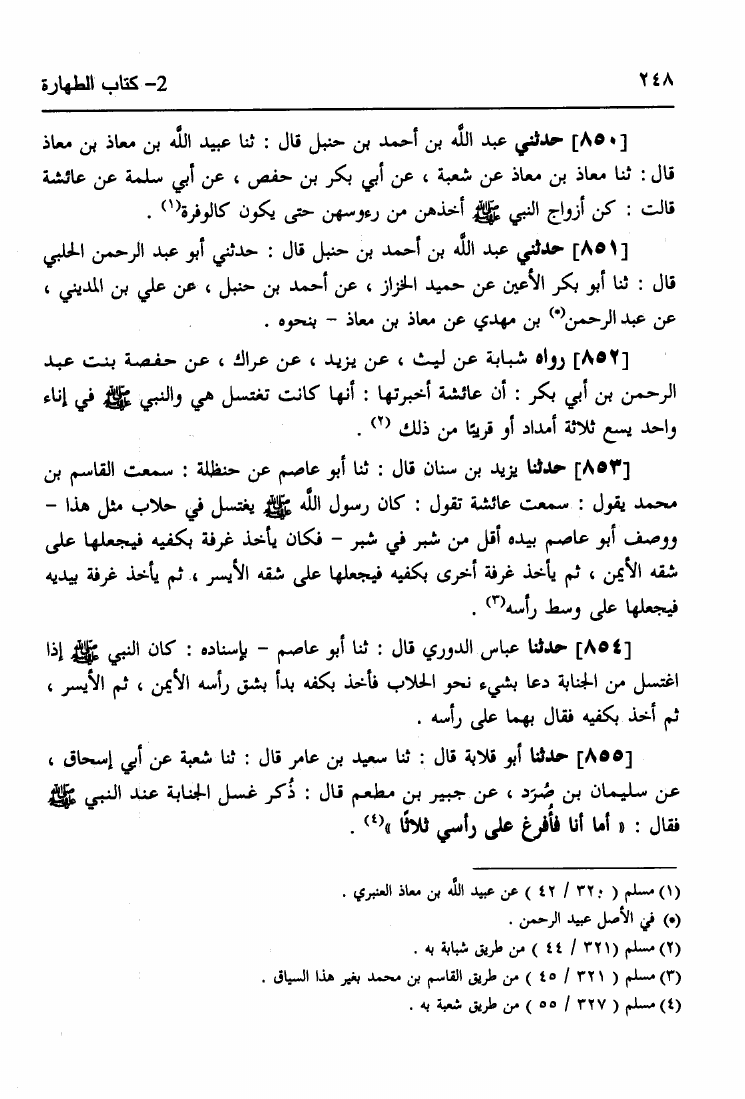 ٢٤٨
2- كتاب الطهارة
[٨٥٠] حدثني عبد الله بن أحمد بن حنبل قال : ثنا عبيد الله بن معاذ بن معاذ
قال : ثنا معاذ بن معاذ عن شعبة ، عن أبي بكر بن حفص ، عن أبي سلمة عن عائشة
قالت : كن أزواج النبي ﷺ أخذهن من رءوسهن حتى يكون كالوفرة(١) .
[٨٥١] حدثني عبد الله بن أحمد بن حنبل قال : حدثني أبو عبد الرحمن الحلبي
قال : ثنا أبو بكر الأعين عن حميد الخزاز ، عن أحمد بن حنبل ، عن علي بن المديني ،
عن عبد الرحمن(*) بن مهدي عن معاذ بن معاذ – بنحوه .
[٨٥٢] رواه شبابة عن ليث ، عن يزيد ، عن عراك ، عن حفصة بنت عبد
الرحمن بن أبي بكر : أن عائشة أخبرتها : أنها كانت تغتسل هي والنبي ﷺ في إناء
واحد يسع ثلاثة أمداد أو قريبًا من ذلك (٢) .
[٨٥٣] حدثنا يزيد بن سنان قال : ثنا أبو عاصم عن حنظلة : سمعت القاسم بن
محمد يقول : سمعت عائشة تقول : كان رسول الله ﷺ يغتسل في حلاب مثل هذا –
ووصف أبو عاصم بيده أقل من شبر في شبر – فكان يأخذ غرفة بكفيه فيجعلها على
شقه الأيمن ، ثم يأخذ غرفة أخرى بكفيه فيجعلها على شقه الأيسر ، ثم يأخذ غرفة بيديه
فيجعلها على وسط رأسه(٣) .
[٨٥٤] حدثنا عباس الدوري قال : ثنا أبو عاصم – بإسناده : كان النبي ﷺ إذا
اغتسل من الجنابة دعا بشيء نحو الحلاب فأخذ بكفه بدأ بشق رأسه الأيمن ، ثم الأيسر ،
ثم أخذ بكفيه فقال بهما على رأسه .
[٨٥٥] حدثنا أبو قلابة قال : ثنا سعيد بن عامر قال : ثنا شعبة عن أبي إسحاق ،
عن سليمان بن صُرَد ، عن جبير بن مطعم قال : ذُكر غسل الجنابة عند النبي ﷺ
فقال : « أما أنا فأُفرغ على رأسي ثلاثًا »(٤) .
(١) مسلم ( ٣٢٠ / ٤٢ ) عن عبيد الله بن معاذ العنبري .
(*) في الأصل عبيد الرحمن .
(٢) مسلم (٣٢١ / ٤٤ ) من طريق شبابة به .
(٣) مسلم ( ٣٢١ / ٤٥ ) من طريق القاسم بن محمد بغير هذا السياق .
(٤) مسلم ( ٣٢٧ / ٥٥ ) من طريق شعبة به .